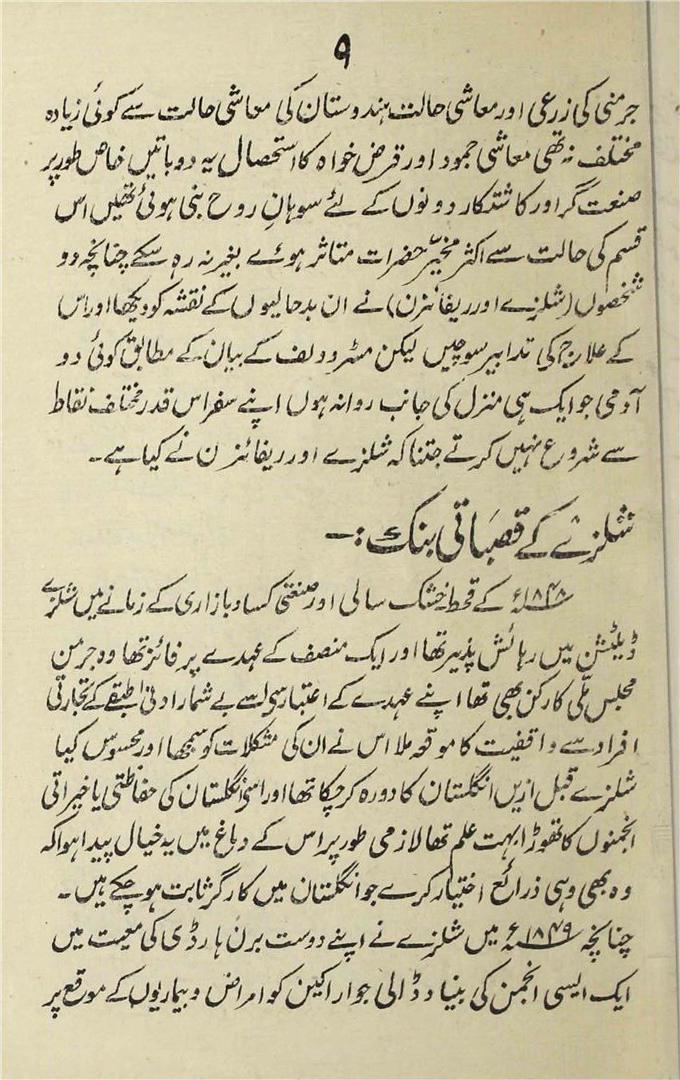 ۹
جرمنی کی زرعی اور معاشی حالت ہندوستان کی معاشی حالت سے کوئی زیادہ
مختلف نہ تھی معاشی جمود اور قرض خواہ کا استحصال یہ دو باتیں خاص طور پر
صنعت گر اور کاشتکار دونوں کے لئے سوہانِ روح بنی ہوئی تھیں اس
قسم کی حالت سے اکثر مخیّر حضرات متاثر ہوے بغیر نہ رہ سکے چنانچہ دو
شخصوں (شلزے اور ریفائزن) نے ان بدحالیوں کے نقشہ کو دیکھا اور اس
کے علاج کی تدابیر سوچیں لیکن مسٹر وولف کے بیان کے مطابق کوئی دو
آدمی جو ایک ہی منزل کی جانب روانہ ہوں اپنے سفر اس قدر مختلف نقاط
سے شروع نہیں کرتے جتنا کہ شلزے اور ریفائزن نے کیا ہے۔
شلزے کے قصباتی بنک :۔
۱۸۴۸ء کے قحط خشک سالی اور صنعتی کساد بازاری کے زمانے میں شلزے
ڈیلٹش میں رہائش پذیر تھا اور ایک منصف کے عہدے پر فائز تھا وہ جرمن
مجلس ملّی کا رکن بھی تھا اپنے عہدے کے اعتبار سے اسے بے شمار ادنیٰ طبقے کے تجارتی
افراد سے واقفیت کا موقعہ ملا اس نے ان کی مشکلات کو سمجھا اور محسوس کیا
شلزے قبل ازیں انگلستان کا دورہ کر چکا تھا اور اسے انگلستان کی حفاظتی یا خیراتی
انجمنوں کا تھوڑا بہت علم تھا لازمی طور پر اس کے دماغ میں یہ خیال پیدا ہوا کہ
وہ بھی وہی ذرائع اختیار کرے جو انگلستان میں کارگر ثابت ہو چکے ہیں۔
چنانچہ ۱۸۴۹ء میں شلزے نے اپنے دوست برن ہارڈی کی معیت میں
ایک ایسی انجمن کی بنیاد ڈالی جو اراکین کو امراض و بیماریوں کے موقع پر